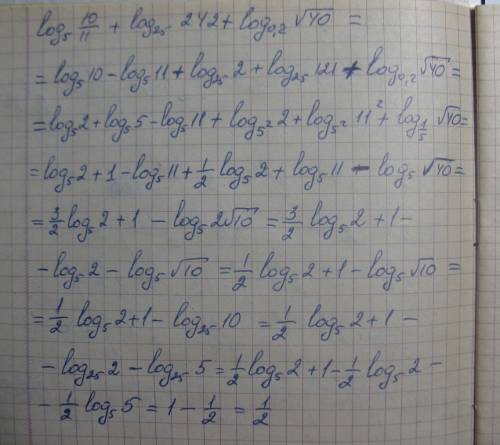 log₅ 10/11 + log₂₅ 242 + log₀,₂ √40 =
= log₅10 - log₅11 + log₂₅ 2 + log₂₅ 121 + log₀,₂ √40 =
= log₅2 + log₅5 - log₅11 + log₅² 2 + log₅² 11² + log_{1/5} √40 =
= log₅2 + 1 - log₅11 + 1/2 log₅2 + log₅11 - log₅ √40 =
= 3/2 log₅2 + 1 - log₅2√10 = 3/2 log₅2 + 1 -
- log₅2 - log₅√10 = 1/2 log₅2 + 1 - log₅√10 =
= 1/2 log₅2 + 1 - log₂₅ 10 = 1/2 log₅2 + 1 -
- log₂₅ 2 - log₂₅ 5 = 1/2 log₅2 + 1 - 1/2 log₅2 -
- 1/2 log₅5 = 1 - 1/2 = 1/2